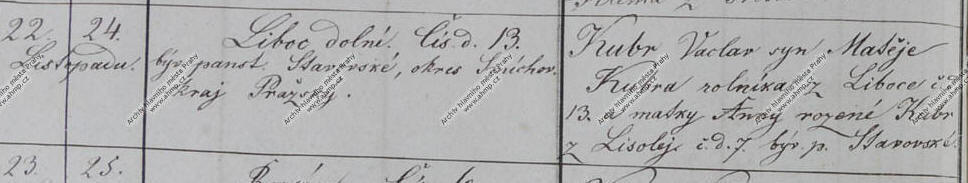 22. 24. Liboc dolní. Čís. d. 13. Kubr Václav syn Matěje
Listopadu. býv. panst. Starovské, okres Smíchov. Kubra rolníka z Liboce č.
kraj Pražský. 13. a matky Anny rozené Kubr
z Lisolej č. d. 7. býv. p. Starovské.
23. 25.
Archiv hlavního města Prahy
www.ahmp.cz